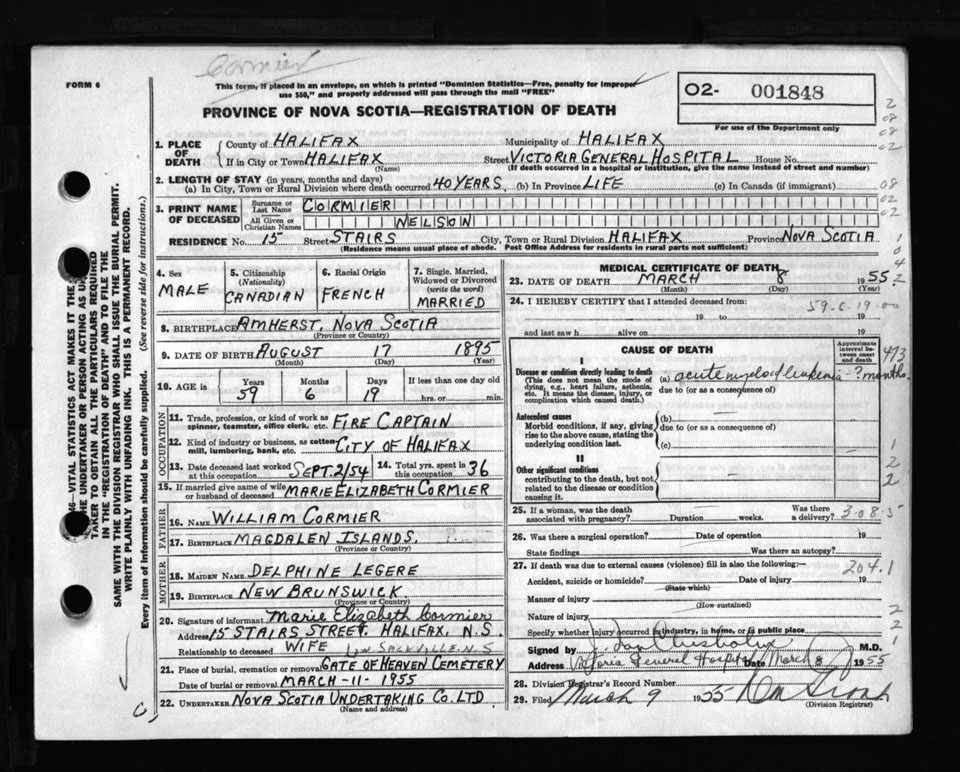 Cormier
FORM 6
This form, if placed in an envelope, on which is printed "Dominion Statistics—Free, penalty for improper
use $50," and properly addressed will pass through the mail "FREE"
02- 001848
For use of the Department only
PROVINCE OF NOVA SCOTIA—REGISTRATION OF DEATH
1. PLACE OF DEATH
County of HALIFAX Municipality of HALIFAX
If in City or Town HALIFAX Street VICTORIA GENERAL HOSPITAL House No.
(If death occurred in a hospital or institution, give the name instead of street and number)
2. LENGTH OF STAY (in years, months and days)
(a) In City, Town or Rural Division where death occurred 40 YEARS (b) In Province LIFE (c) In Canada (if immigrant)
3. PRINT NAME OF DECEASED
Surname or Last Name CORMIER
All Given or Christian Names NELSON
RESIDENCE No. 15 Street STAIRS City, Town or Rural Division HALIFAX Province NOVA SCOTIA
(Residence means usual place of abode. Post Office Address for residents in rural parts not sufficient)
4. Sex MALE
5. Citizenship (Nationality) CANADIAN
6. Racial Origin FRENCH
7. Single, Married, Widowed or Divorced (write the word) MARRIED
8. BIRTHPLACE AMHERST, NOVA SCOTIA
(Province or Country)
9. DATE OF BIRTH AUGUST 17 1895
(Month) (Day) (Year)
10. AGE in Years 59 Months 6 Days 19 If less than one day old
hrs. or min.
OCCUPATION
11. Trade, profession, or kind of work as spinner, teamster, office clerk, etc. FIRE CAPTAIN
12. Kind of industry or business, as cotton mill, lumbering, bank, etc. CITY OF HALIFAX
13. Date deceased last worked at this occupation SEPT. 2/54 14. Total yrs. spent in this occupation 36
15. If married give name of wife or husband of deceased MARIE ELIZABETH CORMIER
FATHER
16. NAME WILLIAM CORMIER
17. BIRTHPLACE MAGDALEN ISLANDS.
(Province or Country)
MOTHER
18. MAIDEN NAME DELPHINE LEGERE
19. BIRTHPLACE NEW BRUNSWICK.
(Province or Country)
20. Signature of informant Marie Elizabeth Cormier
Address 15 STAIRS STREET. HALIFAX, N.S.
Relationship to deceased WIFE
21. Place of burial, cremation or removal GATE OF HEAVEN CEMETERY
SACKVILLE N.S
Date of burial or removal MARCH-11-1955
22. UNDERTAKER NOVA SCOTIA UNDERTAKING CO. LTD
(Name and address)
MEDICAL CERTIFICATE OF DEATH
23. DATE OF DEATH MARCH 8 1955
(Month) (Day) (Year)
24. I HEREBY CERTIFY that I attended deceased from:
59-6-19-00
19 to 19
and last saw h alive on 19
CAUSE OF DEATH
Approximate interval between onset and death
473
I
Disease or condition directly leading to death
(This does not mean the mode of dying, e.g., heart failure, asthenia, etc. It means the disease, injury, or complication which caused death.)
(a) acute myeloid leukemia - ? months.
due to (or as a consequence of)
Antecedent causes
Morbid conditions, if any, giving rise to the above cause, stating the underlying condition last.
(b) —
due to (or as a consequence of)
(c)
II
Other significant conditions
contributing to the death, but not related to the disease or condition causing it.
25. If a woman, was the death associated with pregnancy? Duration weeks. Was there a delivery?
308.5
26. Was there a surgical operation? Date of operation 19
State findings Was there an autopsy?
27. If death was due to external causes (violence) fill in also the following:—
204.1
Accident, suicide or homicide? Date of injury 19
(State which)
Manner of injury
(How sustained)
Nature of injury
Specify whether injury occurred in industry, in home, or in public place
Signed by Chisholm M.D.
Address Victoria General Hospital Date March 8 1955
28. Division Registrar's Record Number
29. Filed March 9 1955
(Division Registrar)
46—VITAL STATISTICS ACT MAKES IT THE
THE UNDERTAKER OR PERSON ACTING AS UN
TAKER TO OBTAIN ALL THE PARTICULARS REQUIRED
IN THE "REGISTRATION OF DEATH" AND TO FILE THE
SAME WITH THE DIVISION REGISTRAR WHO SHALL ISSUE THE BURIAL PERMIT.
WRITE PLAINLY WITH UNFADING INK. THIS IS A PERMANENT RECORD.
Every item of information should be carefully supplied. (See reverse side for instructions.)